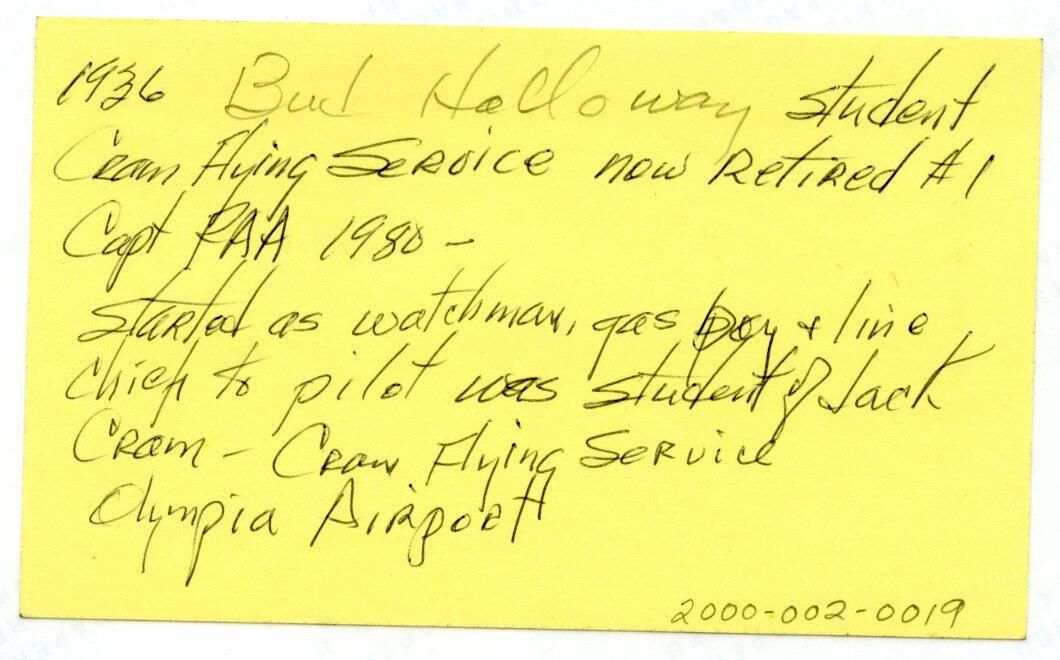 1936 Bud Holloway student
Cram Flying Service now Retired #1
Capt PAA 1980 -
Started as watchman, gas boy + line
chief to pilot was student of Jack
Cram - Cram Flying Service
Olympia Airport
2000-002-0019